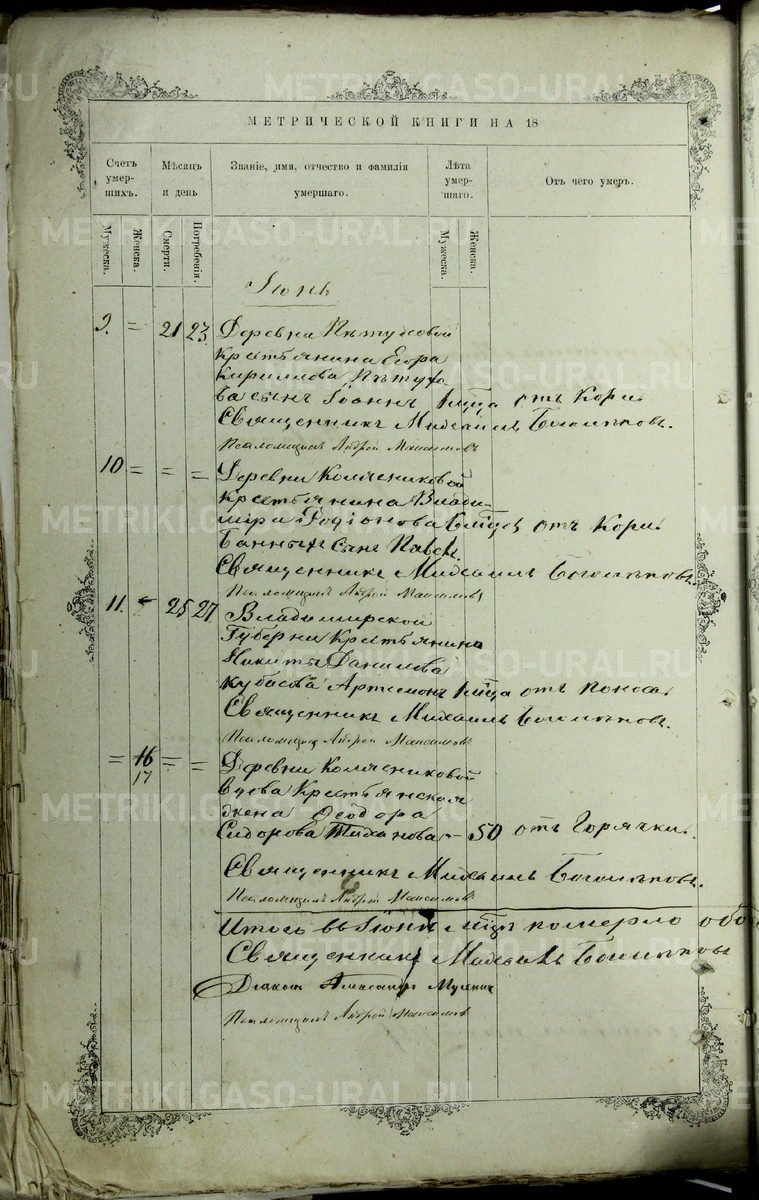 МЕТРИЧЕСКОЙ КНИГИ НА 18
Счетъ умер- шихъ. Мѣсяцъ и день Званіе, имя, отчество и фамилія умершаго. Лѣта умер- шаго. Отъ чего умеръ.
Мужеска. Женска. Смерти. Погребенія. Мужеска. Женска.
Іюнь
9. = 21 23. Деревни Пѣтуховой
крестьянина Егора
Кириллова Пѣтухо
ва сынъ Іоаннъ отъ Кори.
Священникъ Михаилъ
Псаломщикъ Андрей Максимовъ
10 = = = Деревни
крестьянина Влади-
міра Родіонова отъ Кори.
сынъ Павелъ.
Священникъ Михаилъ
Псаломщикъ Андрей Максимовъ
11. 25 27 Владимирской
Губерніи Крестьянина
Никиты Данилова
Артемонъ отъ поноса.
Священникъ Михаилъ
Псаломщикъ Андрей Максимовъ
= 16 = = Деревни
17 Крестьянская
жена Ѳеодора
Сидорова - 50 отъ Горячки.
Священникъ Михаилъ
Псаломщикъ Андрей Максимовъ
Итого въ Іюнѣ м-цѣ померло обо
Священникъ Михаилъ
Діаконъ Александръ
Псаломщикъ Андрей Максимовъ
METRIKI.GASO-URAL.RU